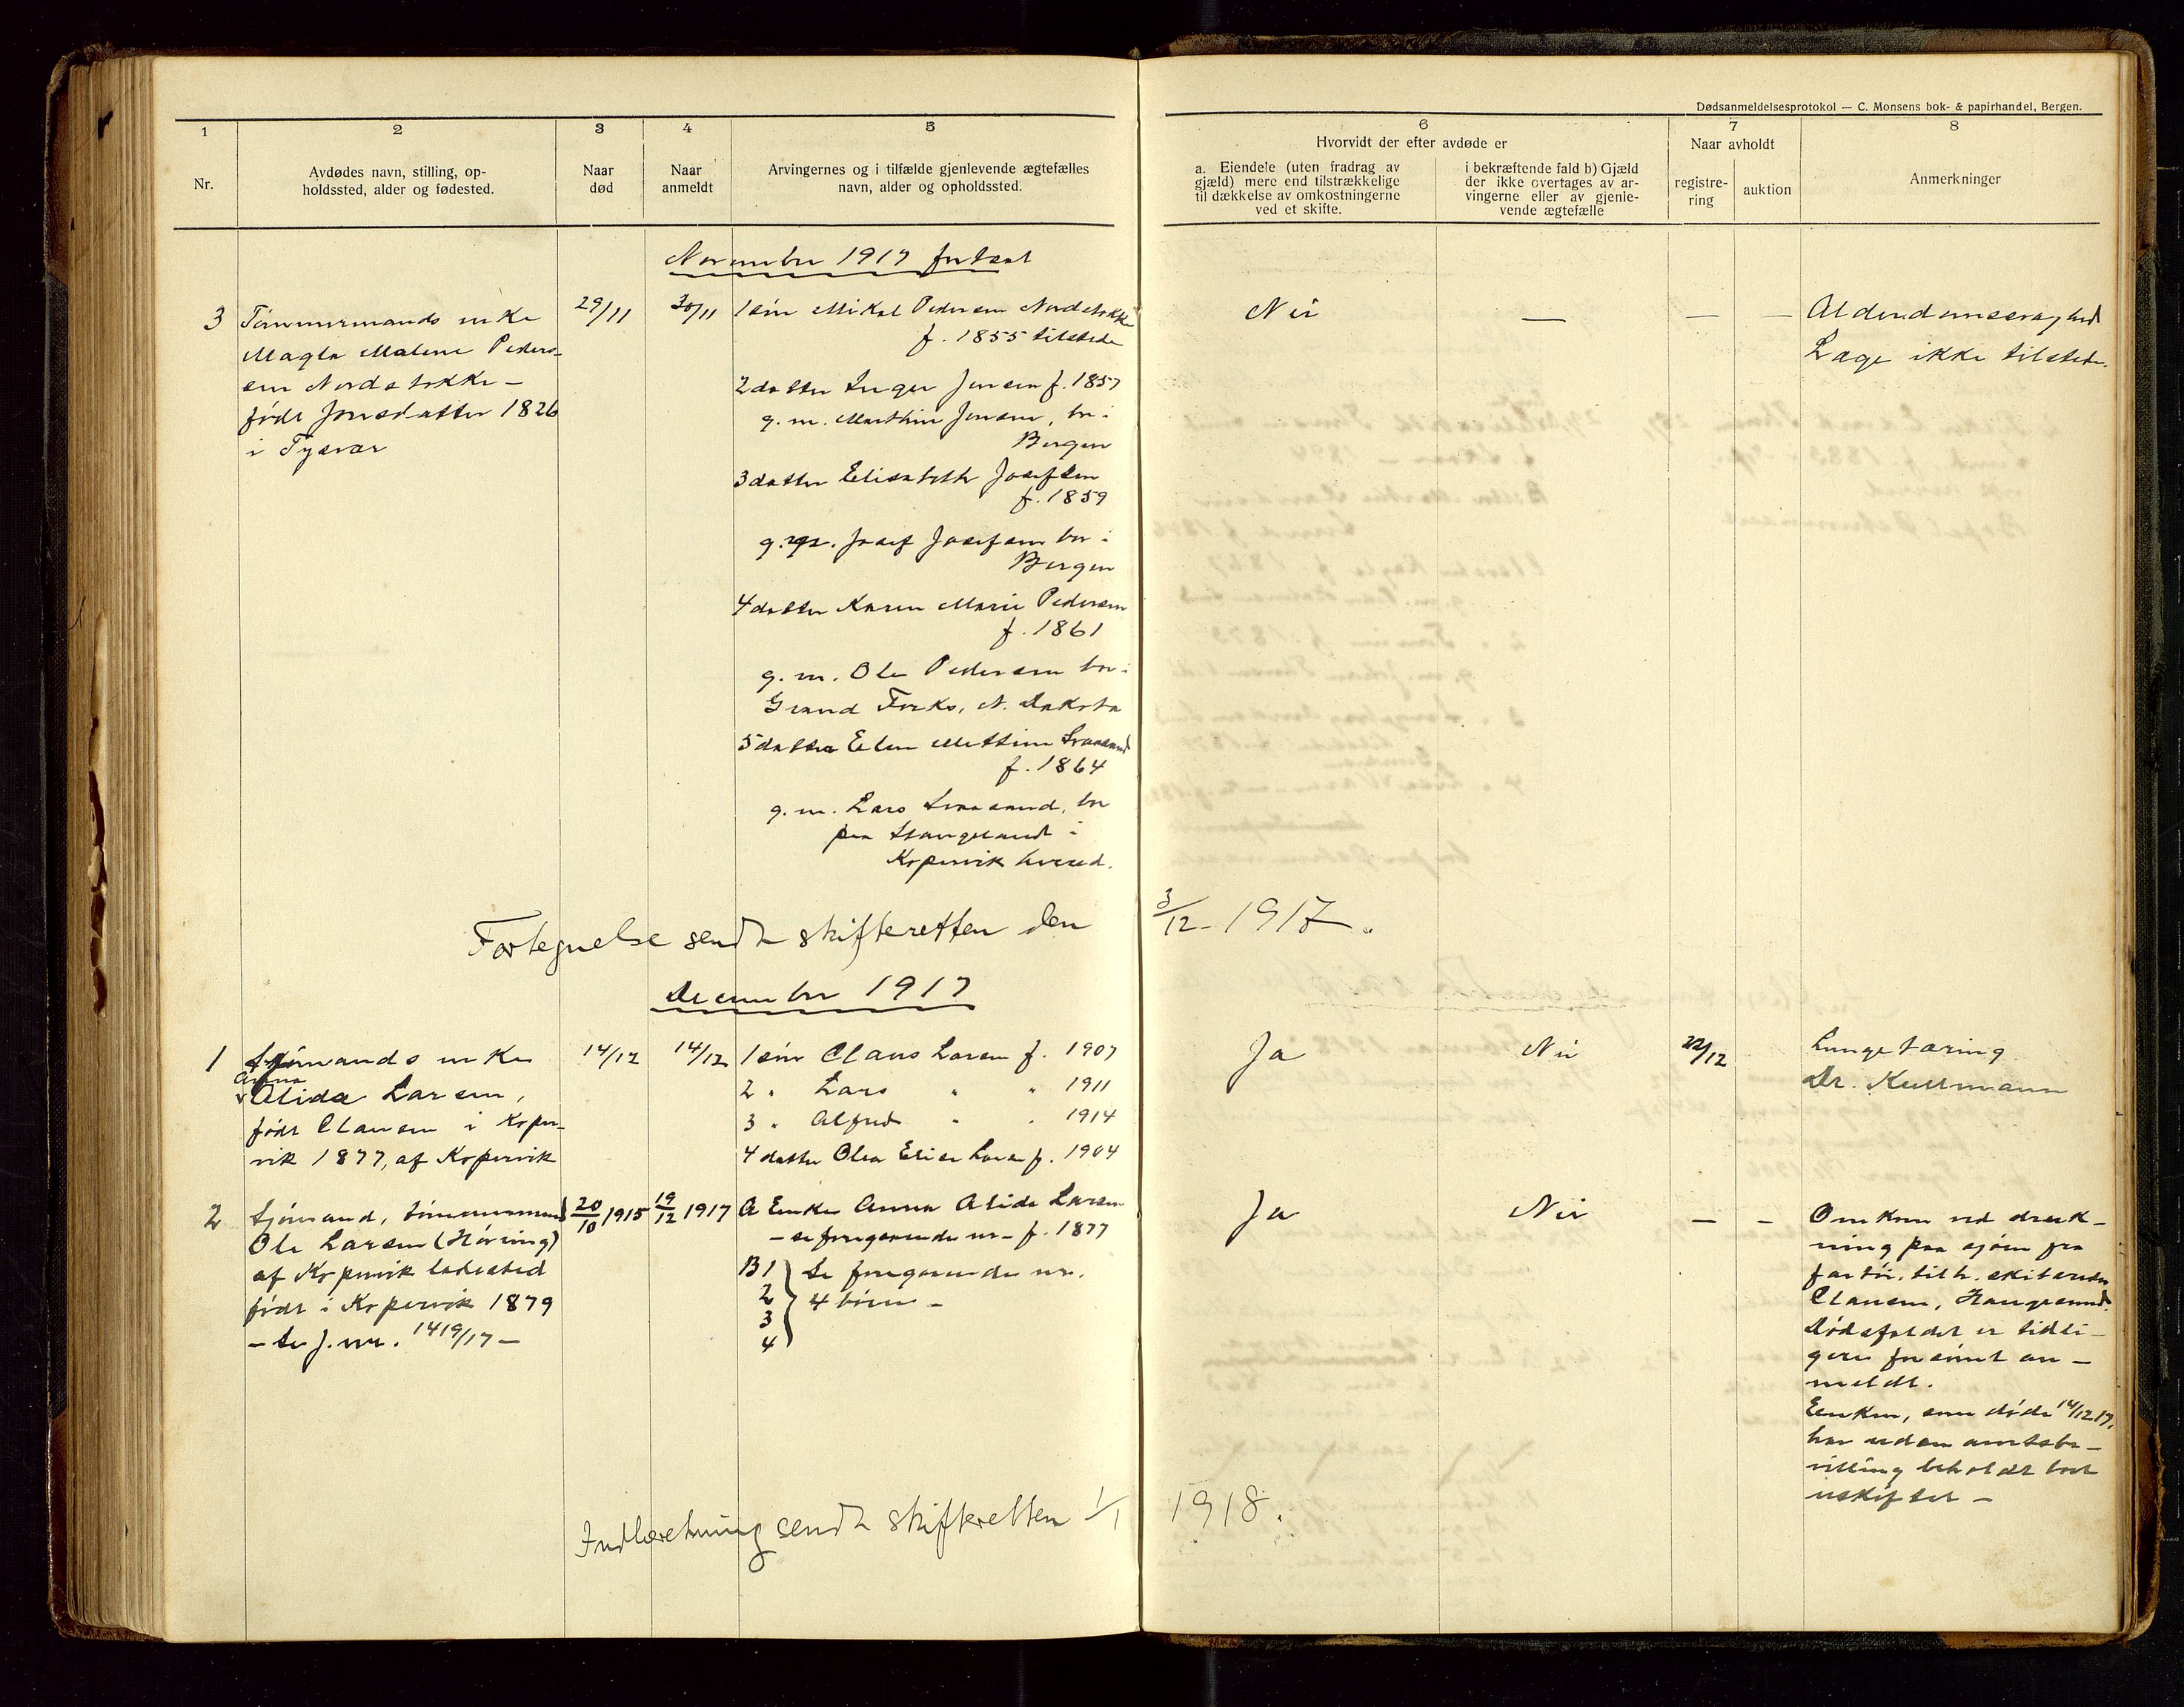 Dødsanmeldelsesprotokol — C. Monsens bok- & papirhandel, Bergen.
1
2
3
4
5
6
7
8
Nr.
Avdødes navn, stilling, op-
holdssted, alder og fødested.
Naar
død
Naar
anmeldt
Arvingernes og i tilfælde gjenlevende ægtefælles
navn, alder og opholdssted.
Hvorvidt der efter avdøde er
a. Eiendele (uten fradrag av
gjæld) mere end tilstrækkelige
til dækkelse av omkostningerne
ved et skifte.
i bekræftende fald b) Gjæld
der ikke overtages av ar-
vingerne eller av gjenle-
vende ægtefælle
Naar avholdt
registre-
ring
auktion
Anmerkninger
November 1917 fortsat
3
Tømmermands enke
Magla Malene Peders-
sen Nordstokke –
født Jonsdatter 1826
i Tysvær
29/11
30/11
1 søn Mikal Pedersen Nordstokke
f. 1855 tilstede
2 datter Inger Jensen f. 1857
g. m. Marthin Jensen, bor i
Bergen
3 datter Elisabeth Josefsen
f. 1859
g. m. Josef Josefsen bor i
Bergen
4 datter Karen Marie Pedersen
f. 1861
g. m. Ole Pedersen bor i
Grand Forks, N. Dakota
5 datter Elen Mettine Svaasand
f. 1864
g. m. Lars Svaasand, bor
paa Stangeland i
Kopervik herred.
Nei
—
—
—
Alderdomssvaghed
Læge ikke tilstede.
Fortegnelse sendt skifteretten den 3/12 - 1917.
December 1917
1
Sjømands enke
Anna
Alida Larsen,
født Clausen i Koper-
vik 1877, af Kopervik
14/12
14/12
1 søn Claus Larsen f. 1907
2 " Lars " " 1911
3 " Alfred " " 1914
4 datter Olea Elise Larsen f. 1904
Ja
Nei
22/12
Lungetæring
Dr. Kullmann
2
Sjømand, tømmermand
Ole Larsen (Høring)
af Kopervik ladested
født i Kopervik 1879
– Se J. nr. 1419/17 –
20/10 1915
19/12 1917
A Enke Anna Alida Larsen
– se foregaaende nr – f. 1877
B 1 } Se foregaaende nr.
2 } 4 børn –
3
4
Ja
Nei
–
–
Omkom ved druk-
ning paa sjøen fra
fartøi, tilh. skibsreder
Clausen, Haugesund.
Dødsfaldet er tidli-
gere forsømt an-
meldt.
Enken, som døde 14/12 17,
har uden amtsbe-
villing beholdt boet
uskiftet –
Indberetning sendt skifteretten 1/1 1918.